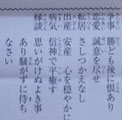 争事 勝とも後に恨あり
恋愛 誠意を尽せ
転居 さしつかえなし
出産 安産 心を穏やかに
病気 信神で平癒す
縁談 思いがけぬよき事
あり騒がずに待ち
なさい